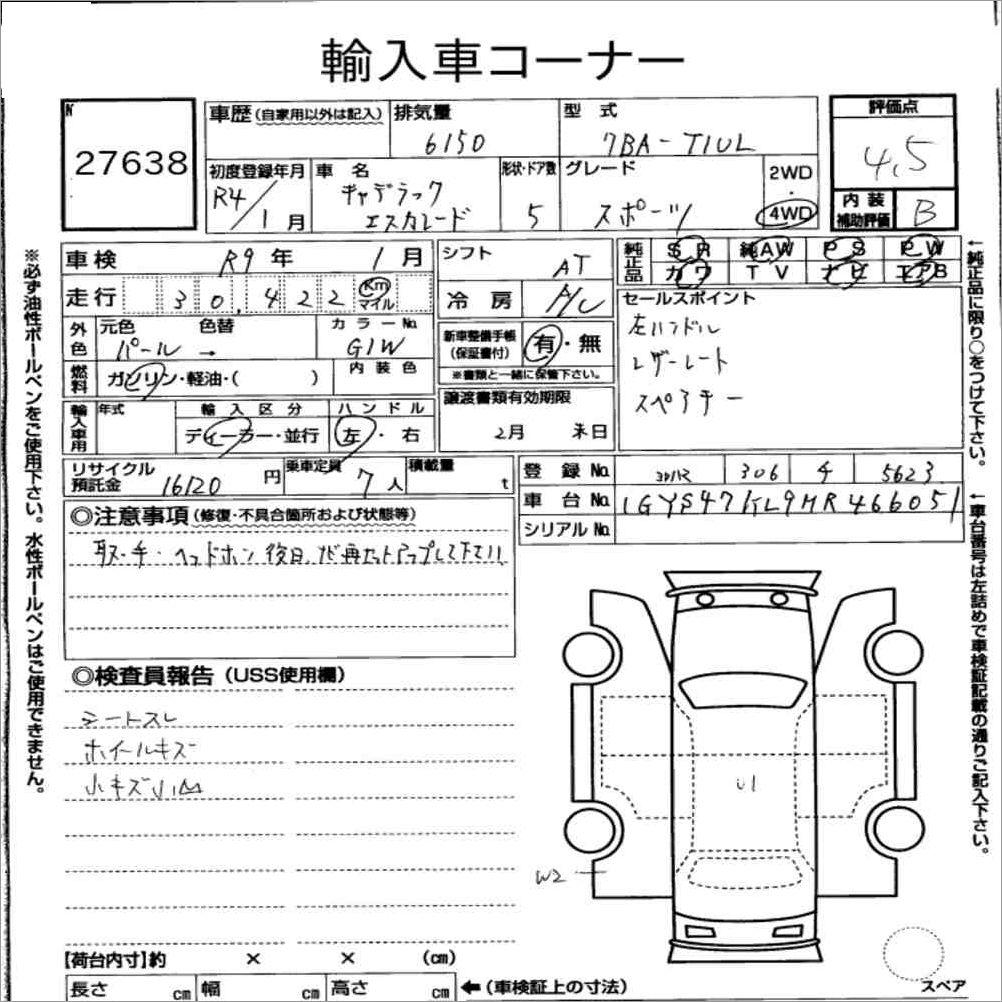 輸入車コーナー
N
27638
車歴 (自家用以外は記入)
排気量
6150
型 式
7BA-T1UL
評価点
4.5
初度登録年月
R4/1月
車 名
キャデラック
エスカレード
形状・ドア数
5
グレード
スポーツ
2WD
・
4WD
内 装
補助評価
B
※必ず油性ボールペンをご使用下さい。水性ボールペンはご使用できません。
車検 R9年 1月
シフト AT
純正品
SR 純AW PS PW
カワ TV ナビ エアB
←純正品に限り○をつけて下さい。
走行 30,422 Km マイル
冷 房 A/C
セールスポイント
左ハンドル
レザーシート
スペアキー
外色
元色 色替
パール →
カラーNo.
G1W
新車整備手帳
(保証書付)
有・無
※書類と一緒に保管下さい。
燃料
ガソリン・軽油・( )
内 装 色
輸入車用
年式
輸 入 区 分
ディーラー・並行
ハ ン ド ル
左・右
譲渡書類有効期限
2月 末日
リサイクル
預託金
16120円
乗車定員
7人
積載量
t
登 録 No.
306 5623
車 台 No. 1GYS47KL9MR466051
シリアル No.
←車台番号は左詰めで車検証記載の通りご記入下さい。
◎注意事項 (修復・不具合箇所および状態等)
取・手・ヘッドホン後日、
再セットアップして下さい
◎検査員報告 (USS使用欄)
シートスレ
ホイールキズ
小キズ小凹
U1
W2
【荷台内寸】約 × × (cm)
長さ cm 幅 cm 高さ cm ←(車検証上の寸法)
スペア